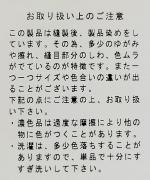 お取り扱い上のご注意
この製品は縫製後、製品染めをし
ています。その為、多少のゆがみ
や擦れ、縫目部分のしわ、色ムラ
がでているのが特徴です。また一
つ一つサイズや色合いの違いが出
ることがございます。
下記の点にご注意の上、お取扱い
下さい。
・濃色品は過度な摩擦により他の
物に色がつくことがあります。
・洗濯は、多少色落ちすることが
ありますので、単品で十分にす
すぎ洗いして下さい。